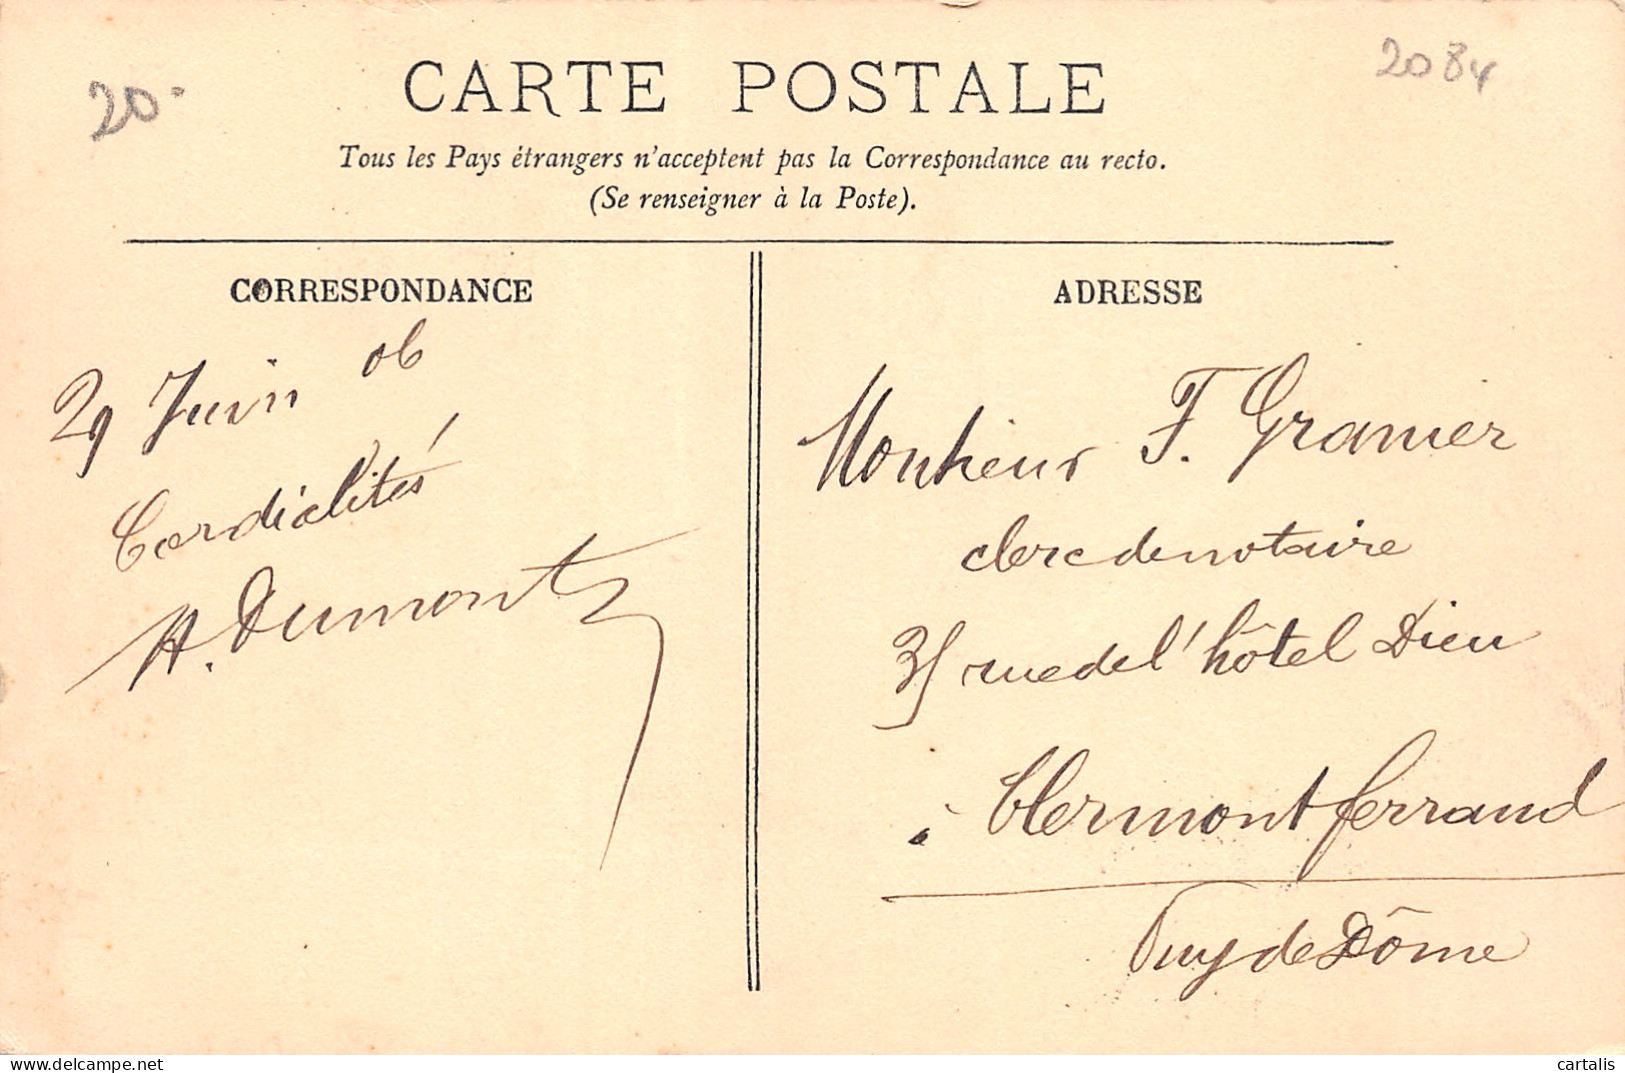 20.-
2084
CARTE POSTALE
Tous les Pays étrangers n'acceptent pas la Correspondance au recto.
(Se renseigner à la Poste).
CORRESPONDANCE
29 Juin 06
Cordialités
H. Dumont
ADRESSE
Monsieur F. Granier
clerc de notaire
35 rue de l'hôtel Dieu
à Clermont ferrand
Puy de Dôme
www.delcampe.net
cartalis